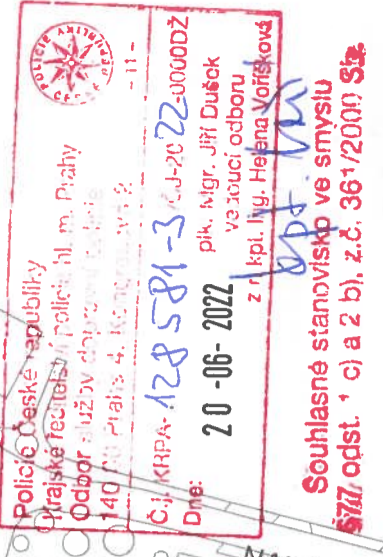 Policie České republiky
Krajské ředitelství policie hl. m. Prahy
Odbor služby dopravní policie
140 Praha 4,
- 11 -
Č.j. KRPA-128581-3/ČJ-2022-0000DŽ
Dne: 20-06-2022
plk. Mgr. Jiří Dušek
vedoucí odboru
z r. kpt. Ing. Helena Voříšková
Souhlasné stanovisko ve smyslu
§77, odst. 1 c) a 2 b), z.č. 361/2000 Sb.